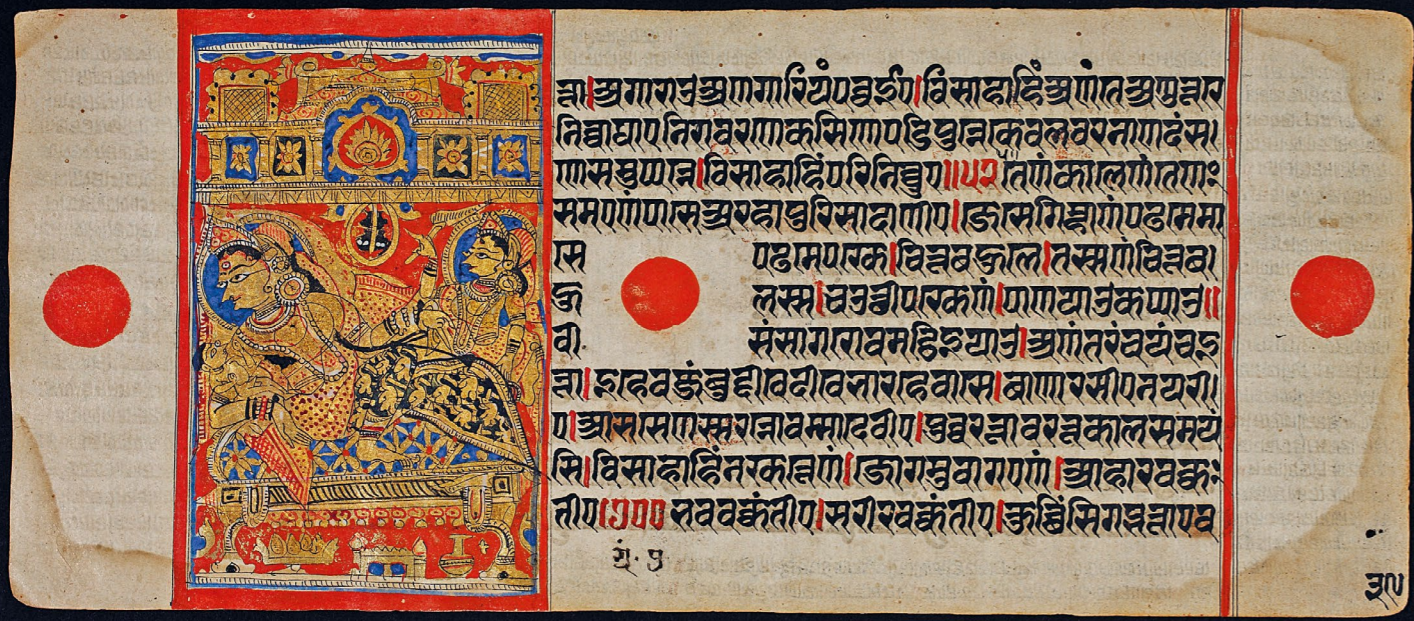 त्ता।अगाराउअणगारियंपव्वईए।विसाहाहिंअणंतेअणुत्तरे
निव्वाघाएनिरावरणेकसिणेपडिपुन्नेकेवलवरनाणदंस
णेसमुप्पन्ने।विसाहाहिंपरिनिव्वुए॥५२तेणंकालेणंतेणं
समएणंपासेअरहापुरिसादाणीए।जेसेगिम्हाणंपढमेमा
सेपढमेपरके।चित्तबहुले।तस्सणंचित्तब
हुलस्स।चउत्थीपरकेणं।पाणयाउकप्पाउ॥
वीसंसागरोवमट्ठिइयाउ।अणंतरंचयंचइ
त्ता।इहेवजंबुद्दीवेदीवेभारहेवासे।वाणारसीएनयरी
ए।आसासेणस्सरन्नोवम्माएदेवीए।पुव्वरत्तावरत्तकालसमयं
सि।विसाहाहिंनरकत्तेणं।जोगमुवागएणं।आहारवक्कं
तीए।७००भववक्कंतीए।सरीरवक्कंतीए।कुच्छिंसिगब्भत्ताएव
ग्रं.
३९